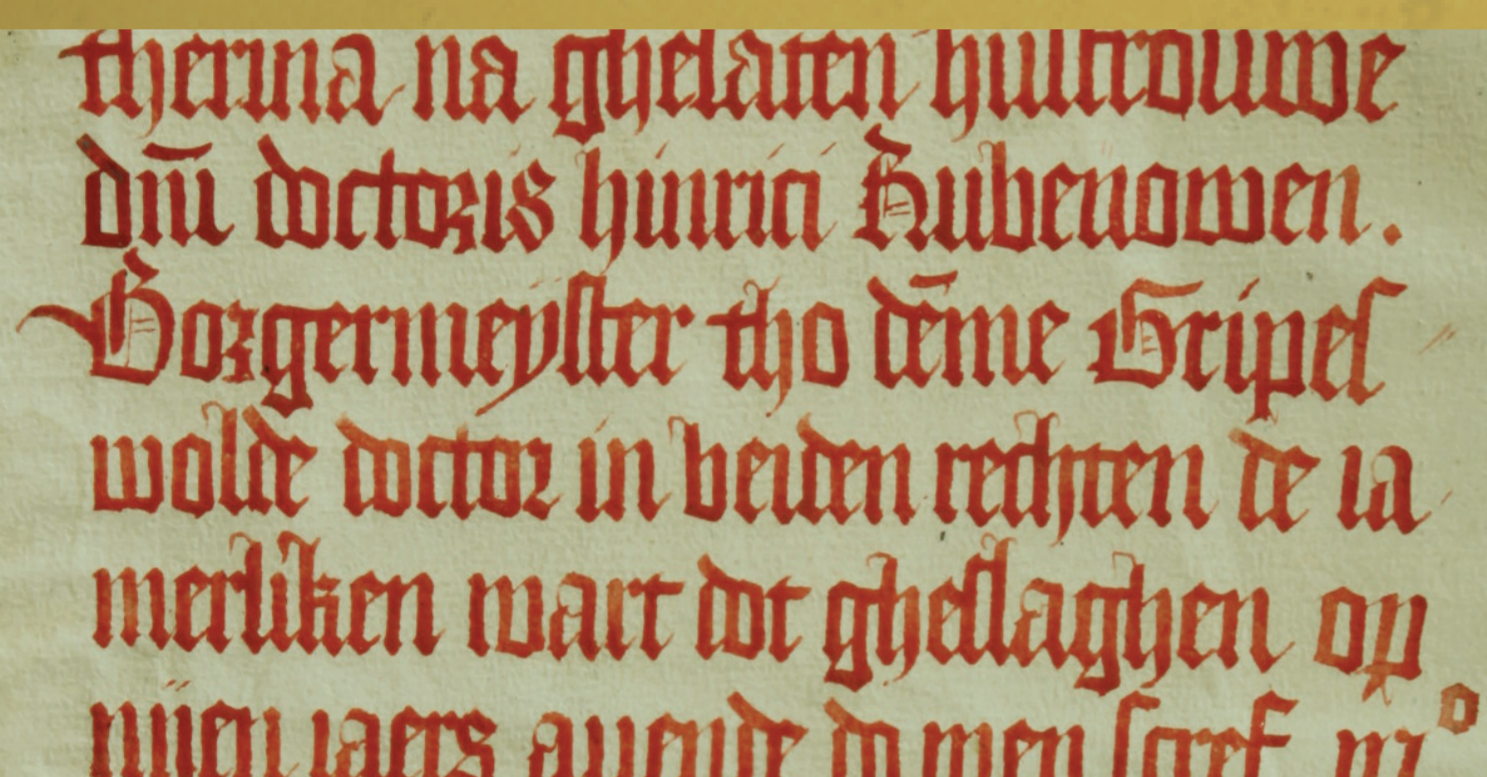 therina na ghelaten husfrouwe
dn̄i doctoris hinrici Rubenowen.
Borgermeyster tho dēme Gripes
wolde doctor in beiden rechten de ia
merliken wart dot gheslaghen op
nijen iaers auende do men scref mᵒ